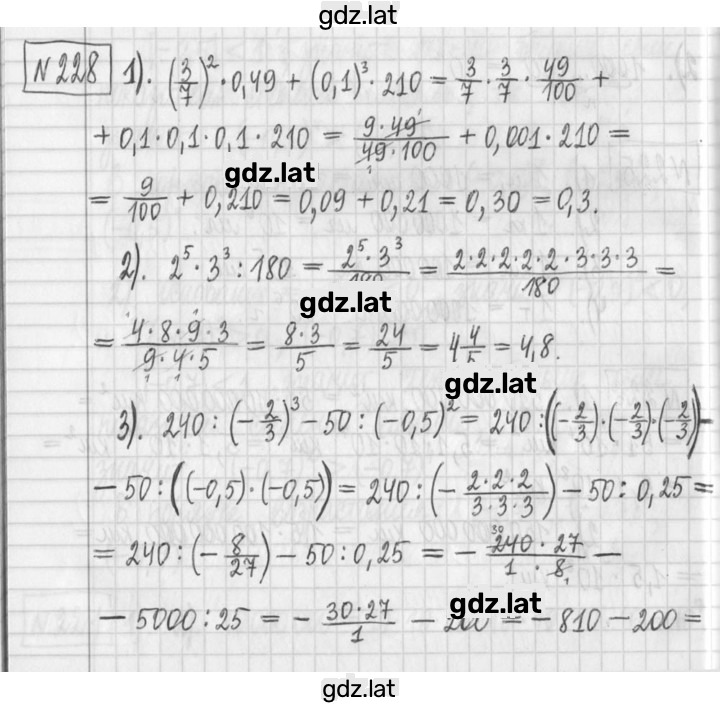 gdz.lat
№ 228 1). (3/7)² · 0,49 + (0,1)³ · 210 = 3/7 · 3/7 · 49/100 +
+ 0,1 · 0,1 · 0,1 · 210 = 9 · 49/49 · 100 + 0,001 · 210 =
gdz.lat
= 9/100 + 0,210 = 0,09 + 0,21 = 0,30 = 0,3.
2). 2⁵ · 3³ : 180 = 2⁵ · 3³/180 = 2 · 2 · 2 · 2 · 2 · 3 · 3 · 3/180 =
gdz.lat
= 4 · 8 · 9 · 3/9 · 4 · 5 = 8 · 3/5 = 24/5 = 4 4/5 = 4,8.
gdz.lat
3). 240 : (-2/3)³ - 50 : (-0,5)² = 240 : ((-2/3) · (-2/3) · (-2/3)) -
- 50 : ((-0,5) · (-0,5)) = 240 : (- 2 · 2 · 2/3 · 3 · 3) - 50 : 0,25 =
= 240 : (- 8/27) - 50 : 0,25 = - 240 · 27/1 · 8 -
gdz.lat
- 5000 : 25 = - 30 · 27/1 - 200 = - 810 - 200 =
gdz.lat